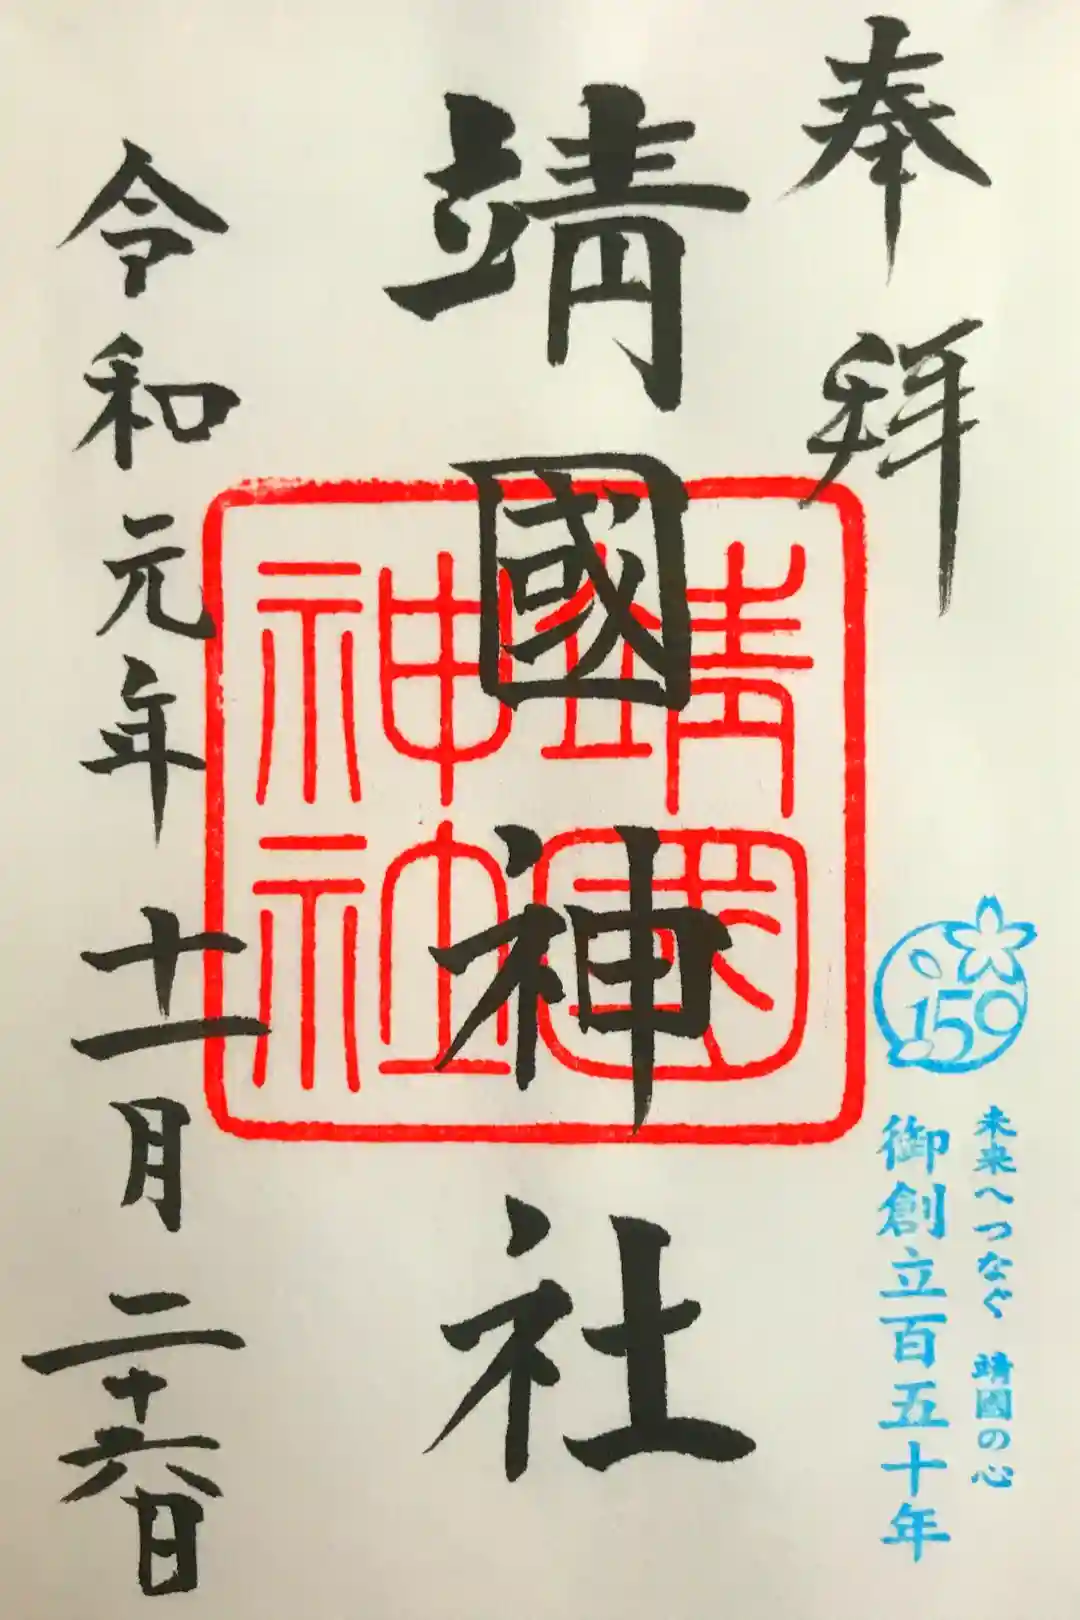 奉拝
靖國神社
靖國神社
令和元年十一月二十六日
150
未来へつなぐ 靖國の心
御創立百五十年